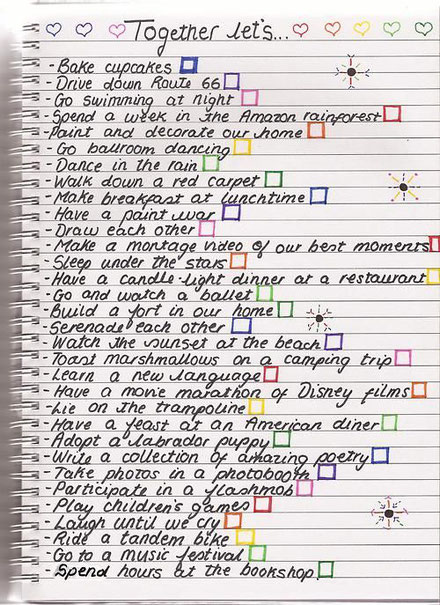 Together let's...
- Bake cupcakes
- Drive down Route 66
- Go swimming at night
- Spend a week in the Amazon rainforest
- Paint and decorate our home
- Go ballroom dancing
- Dance in the rain
- Walk down a red carpet
- Make breakfast at lunchtime
- Have a paint war
- Draw each other
- Make a montage video of our best moments
- Sleep under the stars
- Have a candle-light dinner at a restaurant
- Go and watch a ballet
- Build a fort in our home
- Serenade each other
- Watch the sunset at the beach
- Toast marshmallows on a camping trip
- Learn a new language
- Have a movie marathon of Disney films
- Lie on the trampoline
- Have a feast at an American diner
- Adopt a labrador puppy
- Write a collection of amazing poetry
- Take photos in a photobooth
- Participate in a flashmob
- Play children's games
- Laugh until we cry
- Ride a tandem bike
- Go to a music festival
- Spend hours at the bookshop.